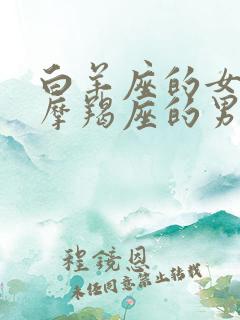 白羊座的女
摩羯座的男
程鏡恩
未任同意禁止转载